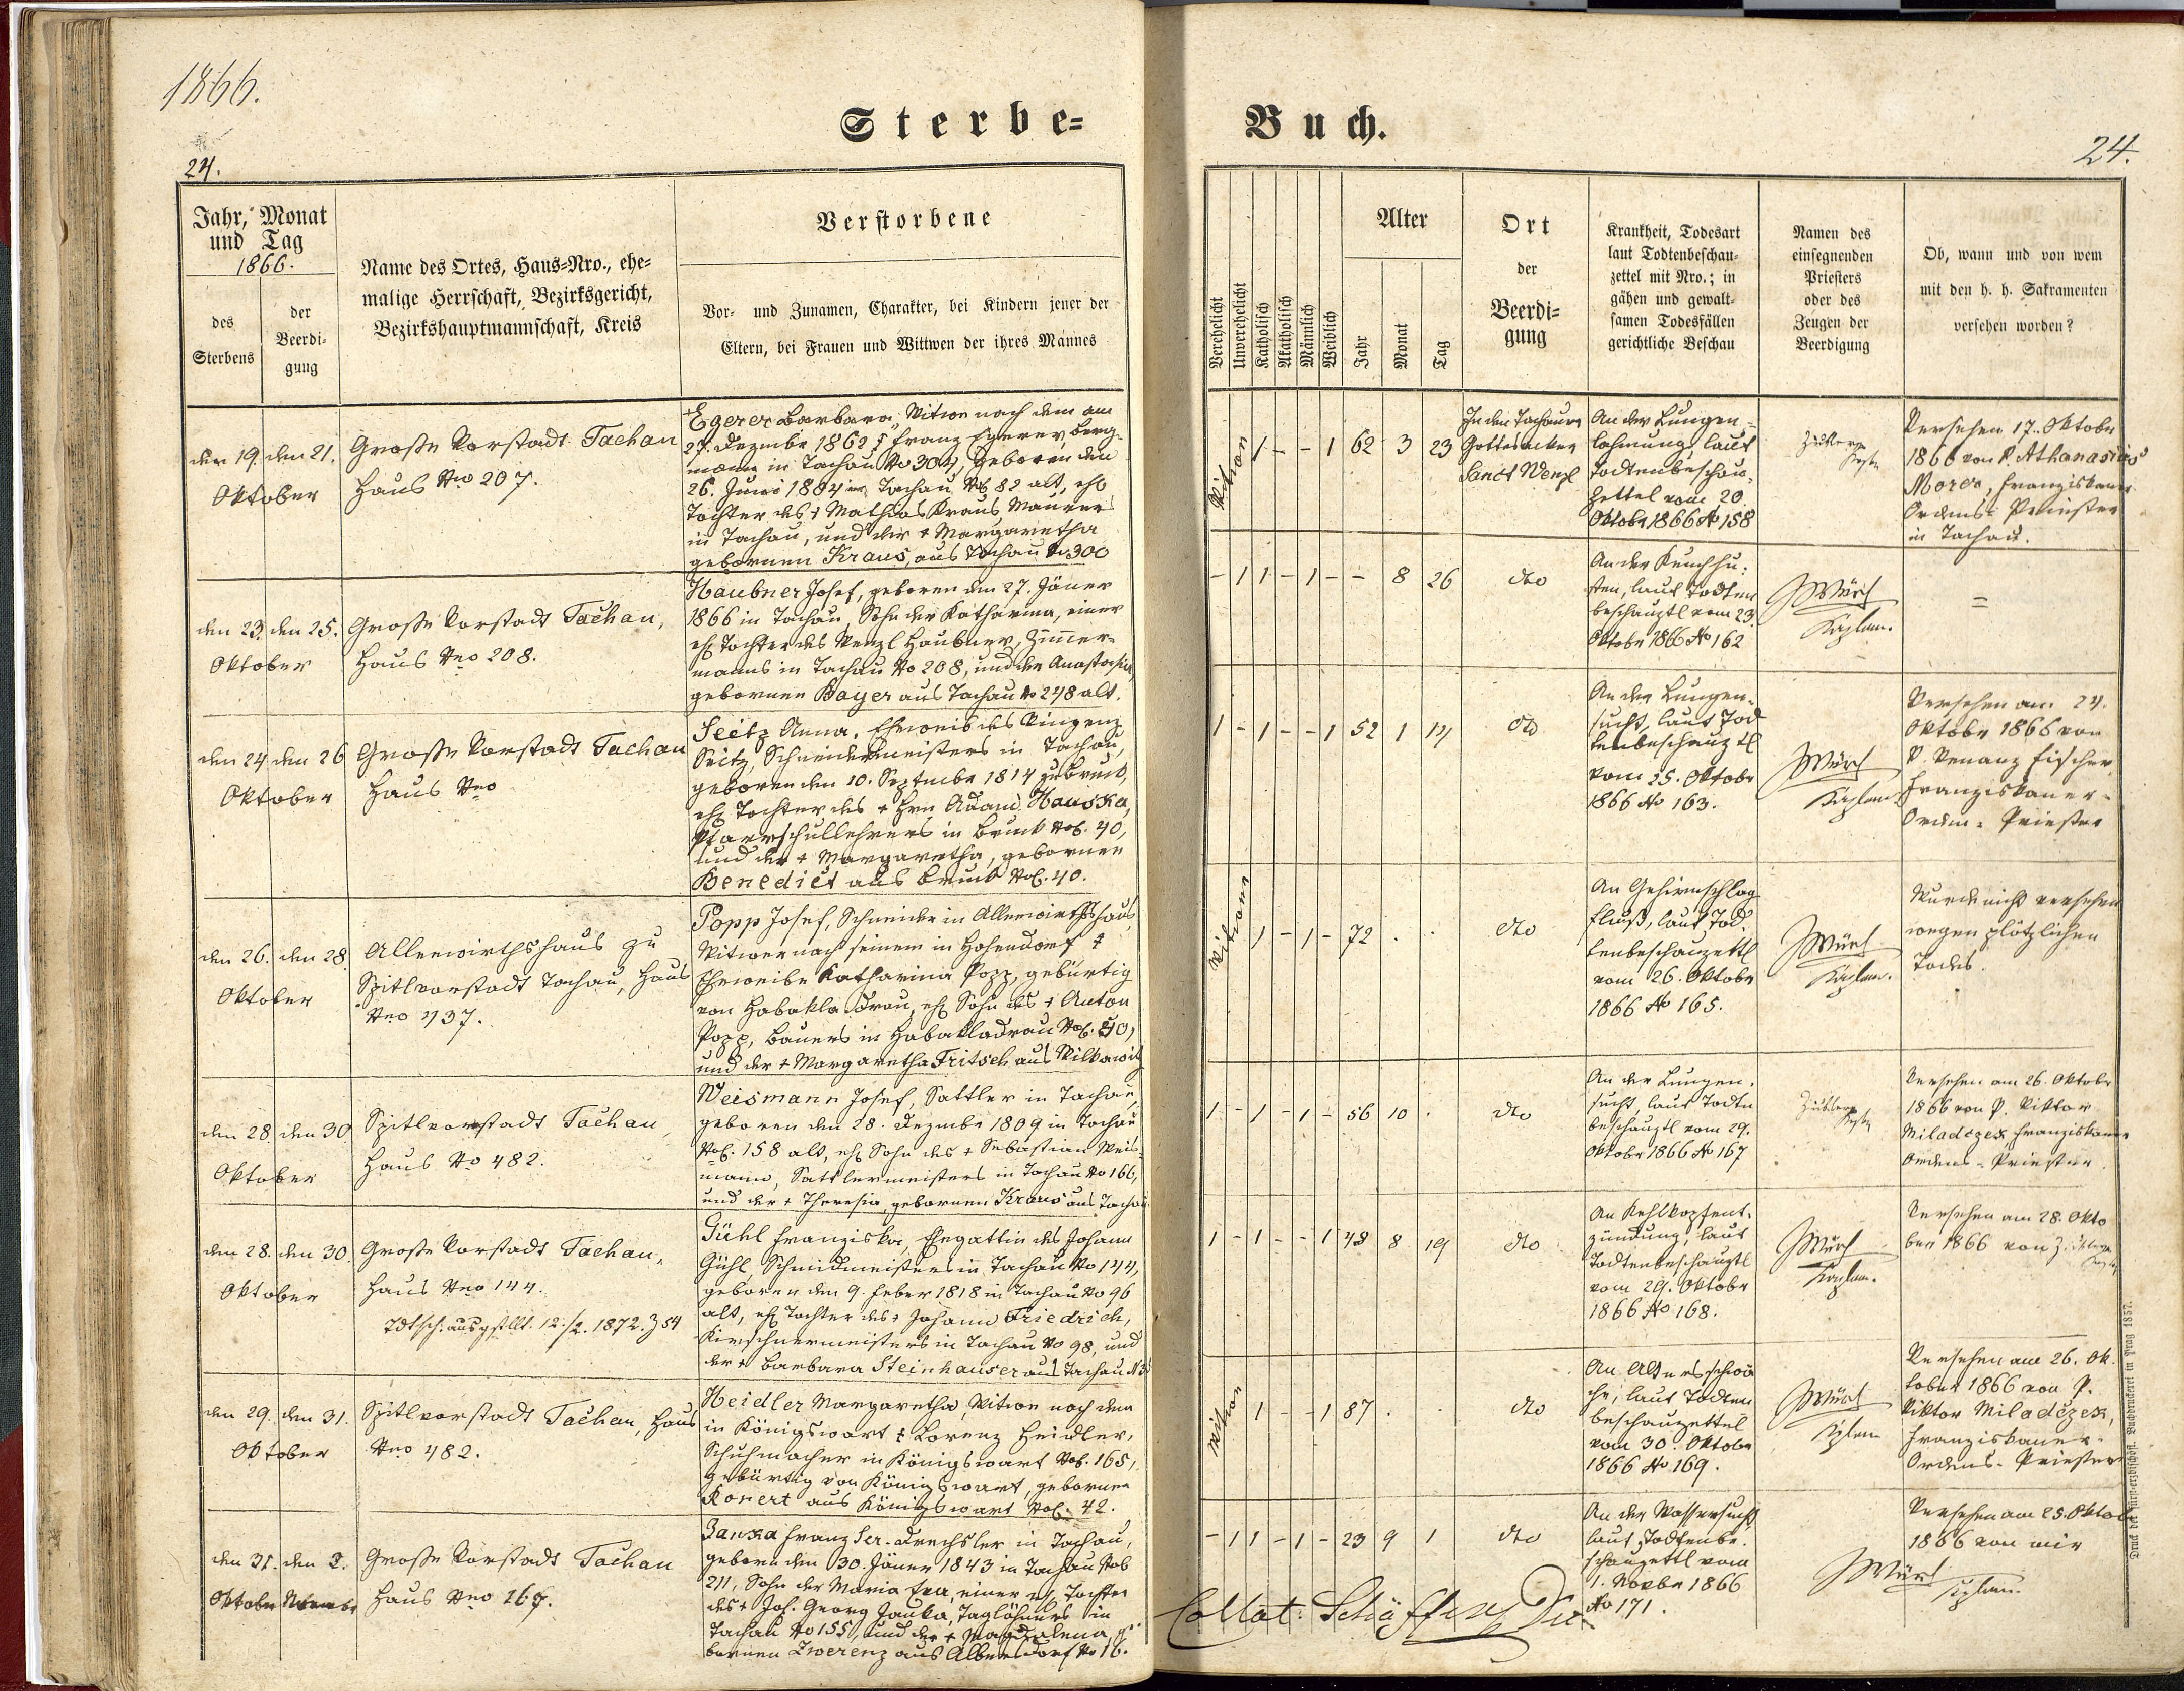 1866.
Sterbe=
Buch.
24.
24.
Jahr, Monat
und Tag
1866.
des
Sterbens
der
Beerdi-
gung
Name des Ortes, Haus=Nro., ehe=
malige Herrschaft, Bezirksgericht,
Bezirkshauptmannschaft, Kreis
Verstorbene
Vor- und Zunamen, Charakter, bei Kindern jener der
Eltern, bei Frauen und Wittwen der ihres Mannes
Verehelicht
Unverehelicht
Katholisch
Akatholisch
Männlich
Weiblich
Alter
Jahr
Monat
Tag
Ort
der
Beerdi=
gung
Krankheit, Todesart
laut Todtenbeschau-
zettel mit Nro.; in
gähen und gewalt-
samen Todesfällen
gerichtliche Beschau
Namen des
einsegnenden
Priesters
oder des
Zeugen der
Beerdigung
Ob, wann und von wem
mit den h. h. Sakramenten
versehen worden?
den 19. den 21.
Oktober
Große Vorstadt Tachau
Haus Nro 207.
Egerer Barbara, Witwe nach dem am
27. Dezembr 1862 † Franz Egerer, Berg-
mann in Tachau No 304, geboren den
26. Juni 1804 in Tachau No 82 alt, ehl
Tochter des † Mathias Kraus Maurers
in Tachau, und der † Margaretha
gebornen Kraus, aus Tachau No 300
Witwe
1 - - 1 62 3 23
In den Tachauer
Gottesacker
Sanct Wenzl
An der Lungen-
lähmung, laut
Todtenbeschau-
zettel vom 20.
Oktobr 1866 No 158
Versehen 17. Oktober
1866 von P. Athanasius
Franziskaner
Ordens-Priester
in Tachau.
den 23. den 25.
Oktober
Große Vorstadt Tachau,
Haus Nro 208.
Haubner Josef, geboren den 27. Jäner
1866 in Tachau, Sohn der Katharina, einer
ehl Tochter des Wenzl Haubner, Zimmer-
manns in Tachau No 208, und der Anastasia
gebornen Bayer aus Tachau No 248 alt.
- 1 1 - 1 - - 8 26
dto
An der Keuchhu-
sten, laut Todten
beschauztl vom 23.
Oktobr 1866 No 162
Würl
Kaplan.
=
den 24 den 26
Oktober
Große Vorstadt Tachau
Haus Nro
Seitz Anna, Eheweib des Vinzenz
Seitz, Schneidermeisters in Tachau,
geboren den 10. Septembr 1814 zu Bruck,
ehl Tochter des † Hrn Adam Hauska,
Pfarrschullehrers in Bruck Nob. 40,
und der † Margaretha, gebornen
Benedict aus Bruck Nob. 40.
1 - 1 - - 1 52 1 14
dto
An der Lungen-
sucht, laut Tod
tenbeschauztl
vom 25. Oktobr
1866 No 163.
Würl
Kaplan
Versehen am 24.
Oktobr 1866 von
P. Venanz Fischer,
Franziskaner-
Ordens-Priester
den 26. den 28.
Oktober
Alleewirthshaus zu
Spitlvorstadt Tachau, Haus
Nro 437.
Popp Josef, Schneider in Alleewirthshaus
Witwer nach seinem in Hohendorf †
Eheweibe Katharina Popp, gebürtig
von Habakladrau, ehl Sohn des † Anton
Popp, Bauers in Habakladrau Nob. 40,
und der † Margaretha Fritsch aus Wilkowitz
Witwer
1 - 1 - 72 . .
dto
An Gehirnschlag
fluß, laut Tod-
tenbeschauzettl
vom 26. Oktobr
1866 No 165.
Würl
Kaplan.
Wurde nicht versehen
wegen plötzlichen
Todes.
den 28 den 30
Oktober
Spitlvorstadt Tachau,
Haus No 482.
Weismann Josef, Sattler in Tachau,
geboren den 28. Dezembr 1809 in Tachau
Nob. 158 alt, ehl Sohn des † Sebastian Weis-
mann, Sattlermeisters in Tachau No 166,
und der † Theresia gebornen Kraus aus Tachau
1 - 1 - 1 - 56 10 .
dto
An der Lungen-
sucht, laut Todten
beschauztl vom 29.
Oktobr 1866 No 167
Versehen am 26. Oktobr
1866 von P. Viktor
Miladczek Franziskaner
Ordens-Priester.
den 28. den 30.
Oktober
Große Vorstadt Tachau,
Haus Nro 144.
Tdtsch. ausgestllt. 12./2. 1872. Z 54
Gühl Franziska, Ehegattin des Johann
Gühl Schmidmeisters in Tachau No 144,
geboren den 9. Feber 1818 in Tachau No 96
alt, ehl Tochter des † Johann Friedrich,
Kirschnermeisters in Tachau No 98, und
der † Barbara Steinhauser aus Tachau
1 - 1 - - 1 48 8 19
dto
An Kehlkopfent-
zündung, laut
Todtenbeschauztl
vom 29. Oktobr
1866 No 168.
Würl
Kaplan.
Versehen am 28. Okto
ber 1866 von
den 29. den 31.
Oktober
Spitlvorstadt Tachau, Haus
Nro 482.
Heidler Margaretha, Witwe nach dem
in Königswart † Lorenz Heidler,
Schuhmacher in Königswart Nob. 165,
gebürtig von Königswart, gebornen
Konert aus Königswart Nob. 42.
Witwe
1 - - 1 87 . .
dto
An Altersschwä
che, laut Todten
beschauzettel
vom 30. Oktobr
1866 No 169.
Würl
Kplan
Versehen am 26. Ok-
tober 1866 von P.
Viktor Miladczek,
Franziskaner-
Ordens-Priester
den 31. den 2.
Oktober Novembr
Große Vorstadt Tachau
Haus Nro 167.
Janka Franz Ser. Drechsler in Tachau,
geboren den 30. Jäner 1843 in Tachau Nob
211, Sohn der Maria Eva, einer ehl Tochter
des † Joh. Georg Janka, Taglöhners in
Tachau No 155, und der † Magdalena ge-
bornen Zwerenz aus Albersdorf No 16.
- 1 1 - 1 - 23 9 1
dto
An der Wassersucht
laut Todtenbe-
schauzettl vom
1. Novbr 1866
No 171.
Würl
Kplan.
Versehen am 25. Oktob
1866 von mir
Collat: Schäffer
Druck der fürsterzbischöfl. Buchdruckerei in Prag 1857.